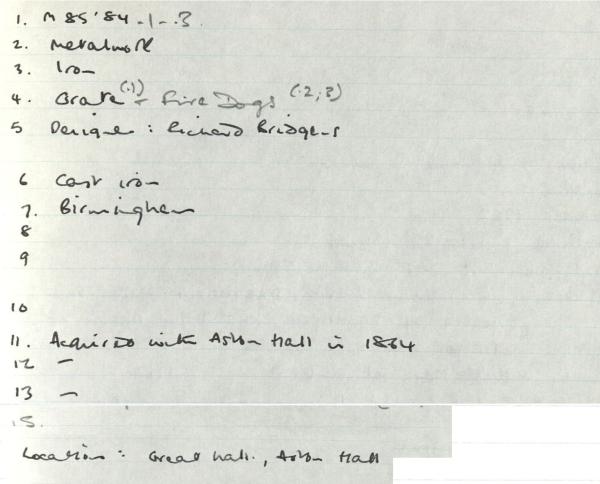 1. M 85'84 .1-.3
2. Metalwork
3. Iron
4. Grate (.1) + Fire Dogs (.2,3)
5 Designer : Richard Bridgens
6 Cast iron
7. Birmingham
8
9
10
11. Acquired with Aston Hall in 1864
12 –
13 –
15.
Location : Great Hall, Aston Hall